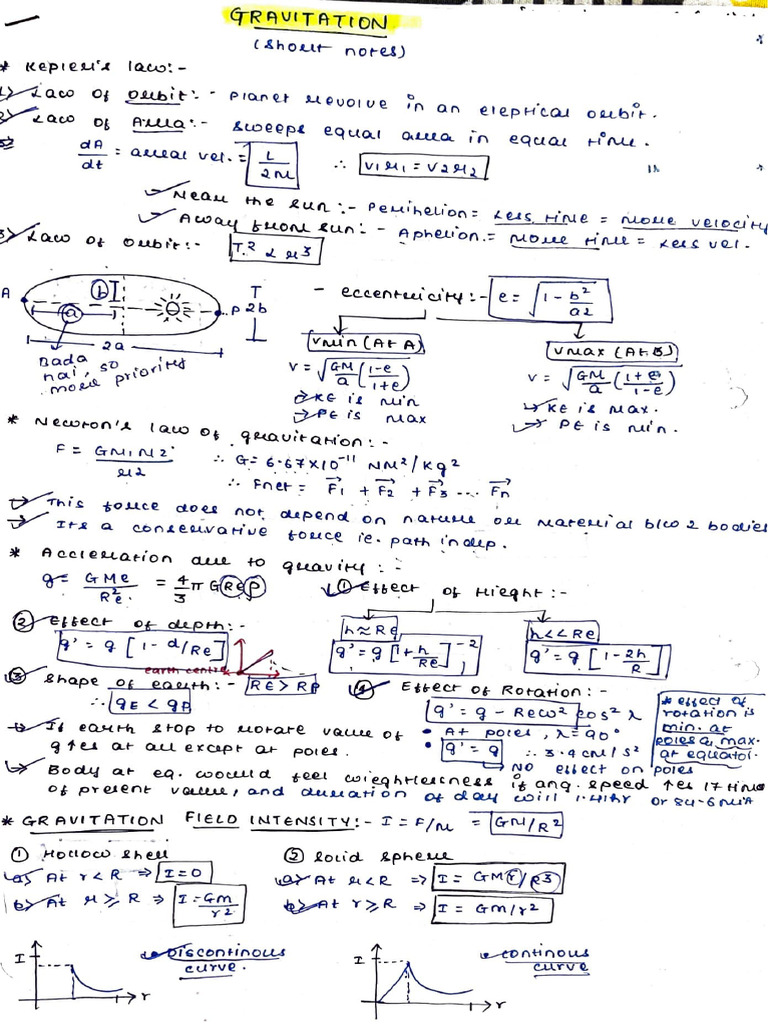 GRAVITATION
(short notes)
* Kepler's law:-
1) Law of Orbit:- Planet revolve in an eleptical orbit.
2) Law of Area:- sweeps equal area in equal time.
dA/dt = areal vel. = L/2M ∴ V1r1 = V2r2
Near the sun:- Perihelion = Less time = more velocity
Away from sun:- Aphelion. = more time = Less vel.
3) Law of orbit:- T² α r³
A b a P 2b 2a
Bada hai, so more priority
- eccentricity:- e = √(1 - b²/a²)
Vmin (At A)
V = √(GM/a (1-e/1+e))
→ KE is min
→ PE is max
Vmax (At B)
V = √(GM/a (1+e/1-e))
→ KE is max.
→ PE is min.
* Newton's law of gravitation:-
F = GM1M2/r2 ∴ G = 6.67×10⁻¹¹ NM²/Kg²
∴ Fnet = F1 + F2 + F3 ... Fn
→ This force does not depend on nature or material b/w 2 bodies
→ Its a conservative force ie. path indep.
* Accleration due to gravity:-
g = GMe/R²e = 4/3 π G Re ρ
① Effect of Hieght:-
h ≈ Re
g' = g [1+h/Re]⁻²
h << Re
g' = g [1 - 2h/R]
② Effect of depth:-
g' = g [1 - d/Re]
earth centre
③ Shape of earth:- RE > RP
∴ gE < gP
④ Effect of Rotation:-
g' = g - Reω² cos² λ
• At poles, λ = 90°
• g' = g ∴ 3.4 cm/s²
→ NO effect on poles
* effect of
rotation is
min. at
poles & max.
at equator.
→ If earth stop to rotate value of
g ↑es at all except at poles.
→ Body at eq. would feel wieghtlessness if ang. speed ↑es 17 time
of present value, and duration of day will 1.41hr or 84.6 min
* GRAVITATION FIELD INTENSITY:- I = F/M = GM/R²
① Hollow shell
a) At r < R ⇒ I = 0
b) At r ≥ R ⇒ I = Gm/r²
② Solid sphere
a) At r < R ⇒ I = GMr/R3
b) At r ≥ R ⇒ I = Gm/r²
I r
Discontinous
curve.
I r
continous
curve